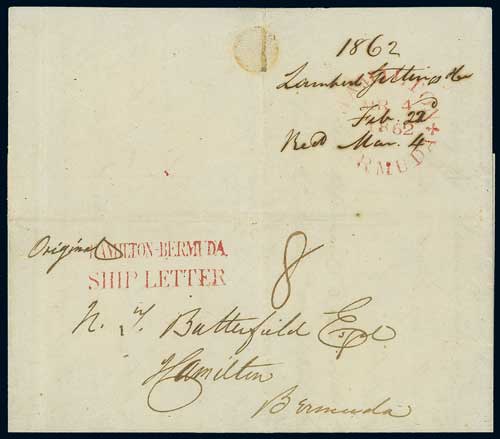 1862
Lambert Gittings
Feb. 22d
HAMILTON
MR 4
1862
BERMUDA
Recd Mar. 4
Original
HAMILTON-BERMUDA,
SHIP LETTER
8
N. T. Butterfield Esqr.
Hamilton
Bermuda